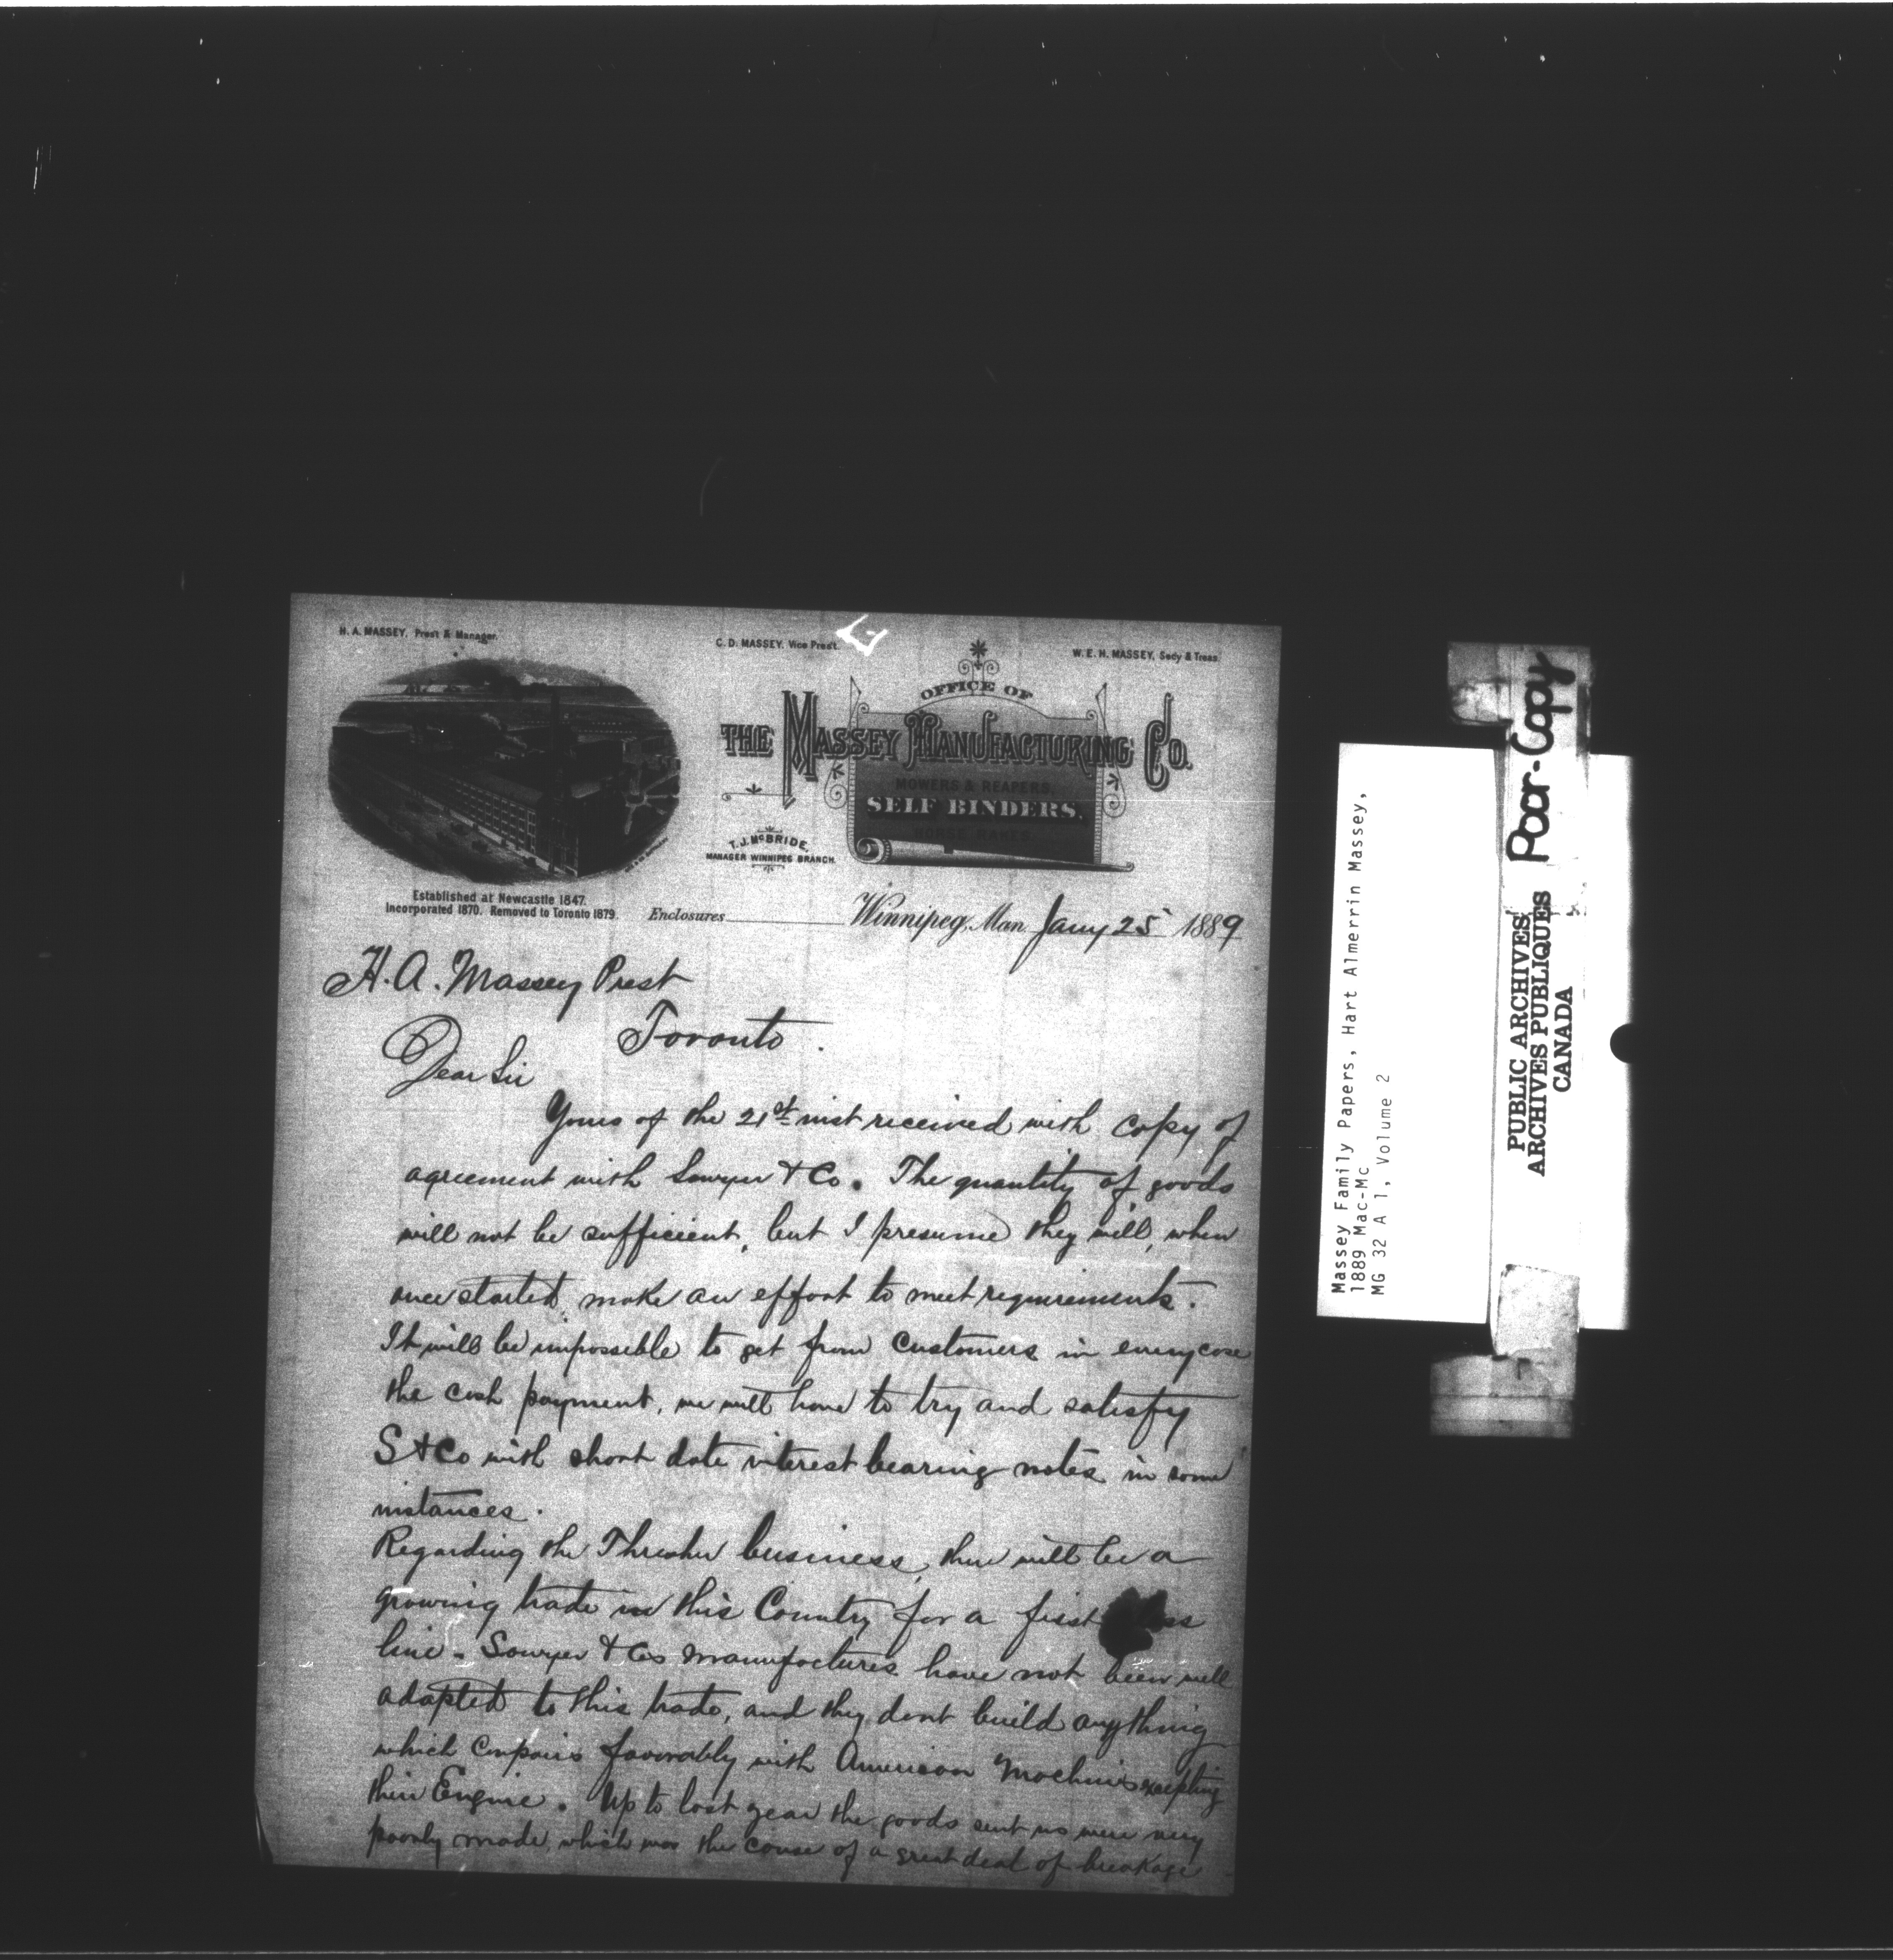 H. A. MASSEY, Prest & Manager.
C. D. MASSEY, Vice Prest.
W. E. H. MASSEY, Secy & Treas.
OFFICE OF
THE MASSEY MANUFACTURING CO.
MOWERS & REAPERS,
SELF BINDERS,
HORSE RAKES.
T. J. McBRIDE,
MANAGER WINNIPEG BRANCH.
Established at Newcastle 1847.
Incorporated 1870. Removed to Toronto 1879.
Enclosures
Winnipeg, Man. Jany 25 1889
H. A. Massey Prest
Toronto.
Dear Sir
Yours of the 21st inst received with copy of
agreement with Sawyer & Co. The quantity of goods
will not be sufficient, but I presume they will, when
once started, make an effort to meet requirements.
It will be impossible to get from Customers in every case
the cash payment, we will have to try and satisfy
S & Co with short date interest bearing notes in some
instances.
Regarding the Thresher business, there will be a
growing trade in this Country for a first
line. Sawyer & Cos manufactures have not been well
adapted to this trade, and they dont build anything
which compairs favorably with American Machines excepting
their Engine. Up to last year the goods sent us were very
poorly made, which was the cause of a great deal of breakage
Massey Family Papers, Hart Almerrin Massey,
1889 Mac-Mc
MG 32 A 1, Volume 2
PUBLIC ARCHIVES
ARCHIVES PUBLIQUES
CANADA
Poor-Copy